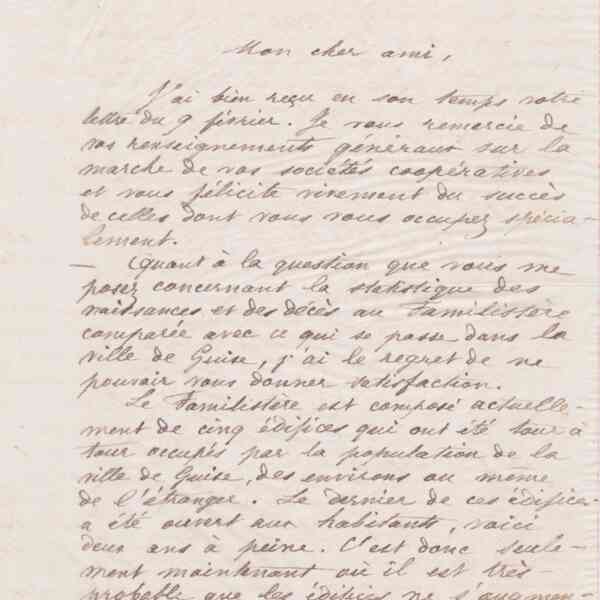 Mon cher ami,
J'ai bien reçu en son temps votre
lettre du 9 février. Je vous remercie de
vos renseignements généraux sur la
marche de vos sociétés coopératives
et vous félicite vivement du succès
de celles dont vous vous occupez spécia-
lement.
— Quant à la question que vous me
posez concernant la statistique des
naissances et des décès au Familistère
comparée avec ce qui se passe dans la
ville de Guise, j'ai le regret de ne
pouvoir vous donner satisfaction.
Le Familistère est composé actuelle-
ment de cinq édifices qui ont été tour à
tour occupés par la population de la
ville de Guise, des environs ou même
de l'étranger. Le dernier de ces édifices
a été ouvert aux habitants, voici
deux ans à peine. C'est donc seule-
ment maintenant où il est très-
probable que les édifices ne s'augmen-